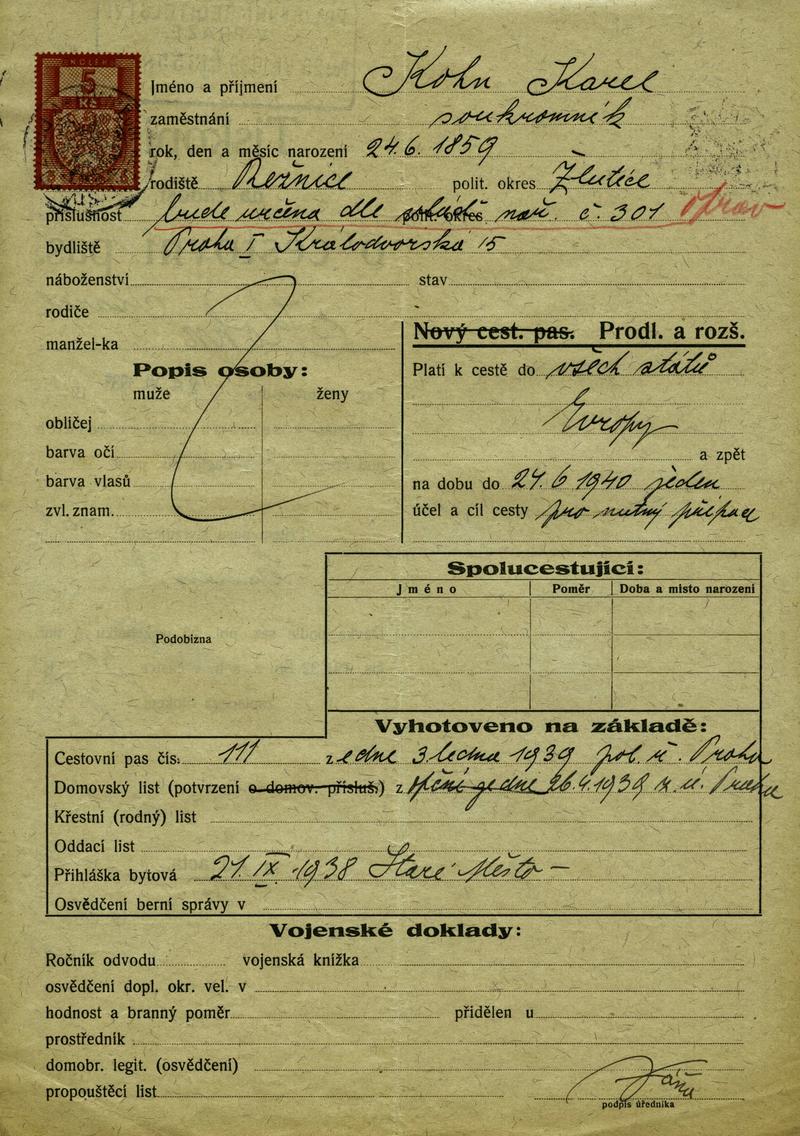 KOLEK
5
Kč
Jméno a příjmení Kohn Karel
zaměstnání soukromník
rok, den a měsíc narození 24.6. 1859
rodiště polit. okres Žlutice
příslušnost bude určena dle polit. okres nař. č. 301 oprav
bydliště Praha I Králodvorská 15
náboženství stav
rodiče
manžel-ka
Nový cest. pas. Prodl. a rozš.
Popis osoby:
muže ženy
Platí k cestě do všech států
obličej
Evropy
barva očí
a zpět
barva vlasů
na dobu do 24.6 1940 jeden
zvl. znam.
účel a cíl cesty pro nutný případ
Spolucestující:
Jméno Poměr Doba a místo narození
Podobizna
Vyhotoveno na základě:
Cestovní pas čís. 111 ze dne 3 ledna 1939 pol. ř. Praha
Domovský list (potvrzení o domov. přísluš.) z 26.4.1939 Praha
Křestní (rodný) list
Oddací list
Přihláška bytová 21. IX 1938 Staré Město —
Osvědčení berní správy v
Vojenské doklady:
Ročník odvodu vojenská knížka
osvědčení dopl. okr. vel. v
hodnost a branný poměr přidělen u
prostředník
domobr. legit. (osvědčení)
propouštěcí list
podpis úředníka